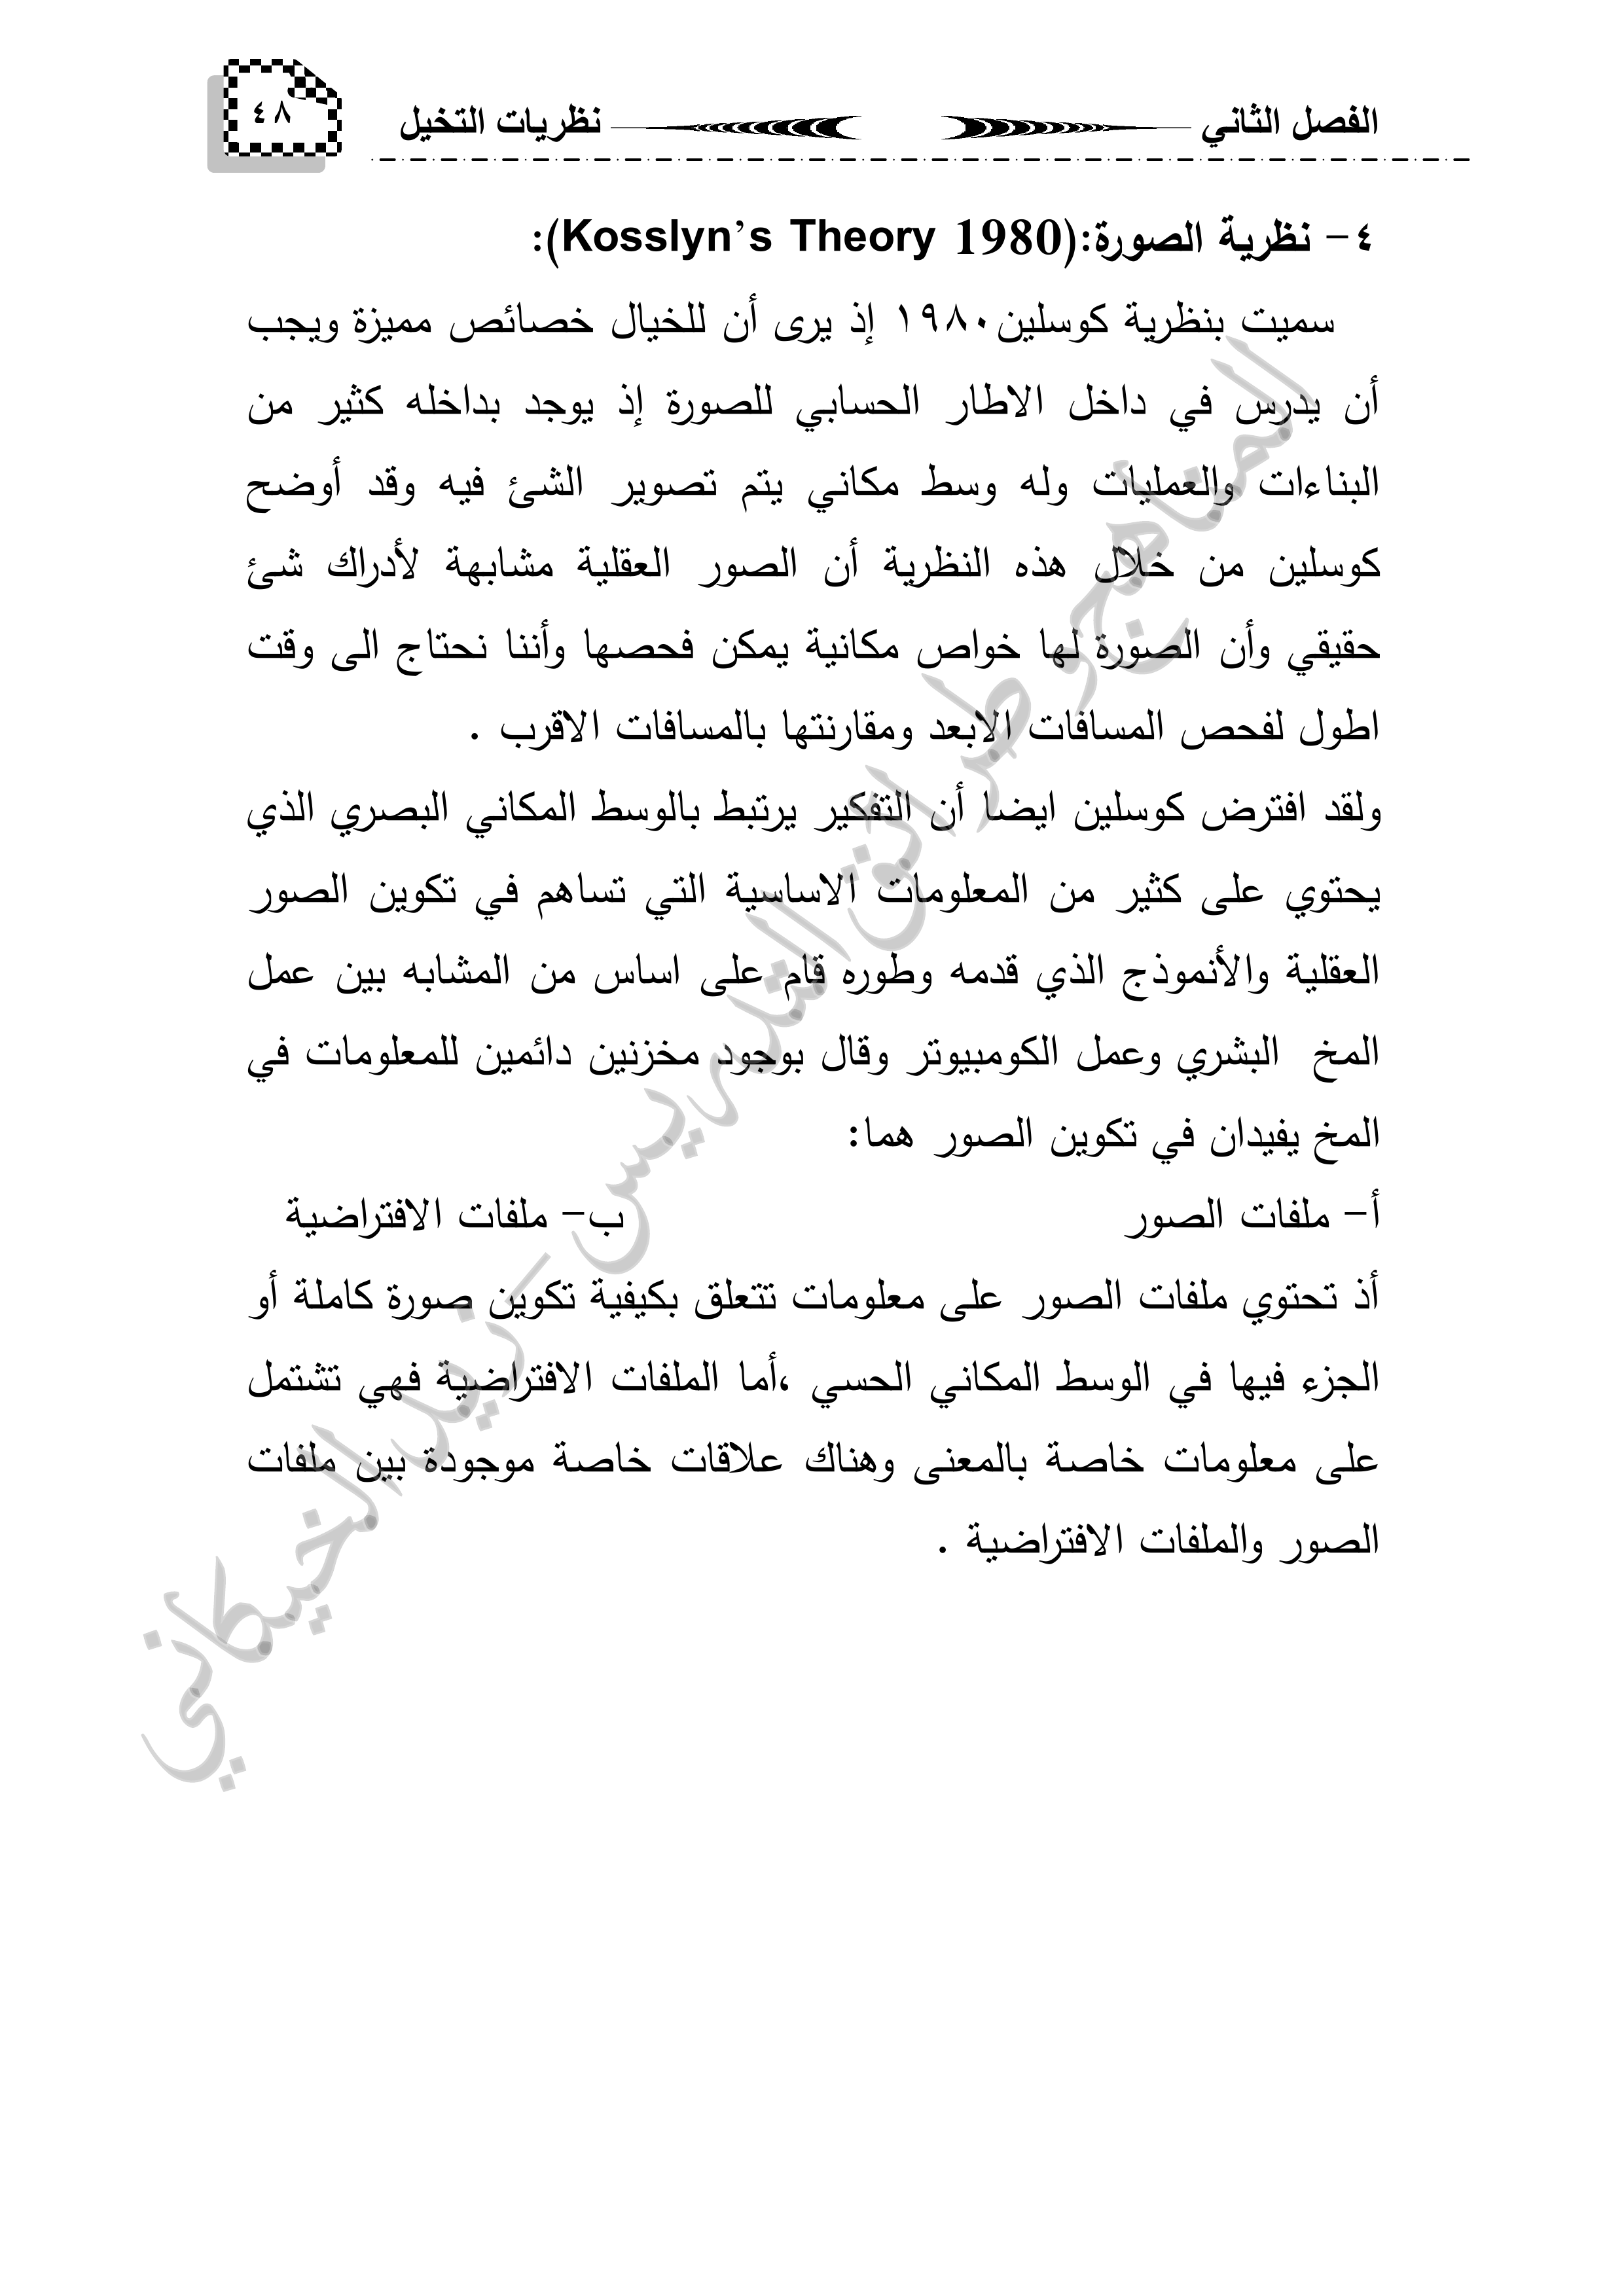 الفصل الثاني نظريات التخيل ٤٨
٤- نظرية الصورة:(Kosslyn's Theory 1980):
سميت بنظرية كوسلين١٩٨٠ إذ يرى أن للخيال خصائص مميزة ويجب
أن يدرس في داخل الاطار الحسابي للصورة إذ يوجد بداخله كثير من
البناءات والعمليات وله وسط مكاني يتم تصوير الشئ فيه وقد أوضح
كوسلين من خلال هذه النظرية أن الصور العقلية مشابهة لأدراك شئ
حقيقي وأن الصورة لها خواص مكانية يمكن فحصها وأننا نحتاج الى وقت
اطول لفحص المسافات الابعد ومقارنتها بالمسافات الاقرب .
ولقد افترض كوسلين ايضا أن التفكير يرتبط بالوسط المكاني البصري الذي
يحتوي على كثير من المعلومات الاساسية التي تساهم في تكوين الصور
العقلية والأنموذج الذي قدمه وطوره قام على اساس من المشابه بين عمل
المخ البشري وعمل الكومبيوتر وقال بوجود مخزنين دائمين للمعلومات في
المخ يفيدان في تكوين الصور هما:
أ- ملفات الصور ب- ملفات الافتراضية
أذ تحتوي ملفات الصور على معلومات تتعلق بكيفية تكوين صورة كاملة أو
الجزء فيها في الوسط المكاني الحسي ،أما الملفات الافتراضية فهي تشتمل
على معلومات خاصة بالمعنى وهناك علاقات خاصة موجودة بين ملفات
الصور والملفات الافتراضية .
المناهج وطرائق التدريس - زيد الخيكاني